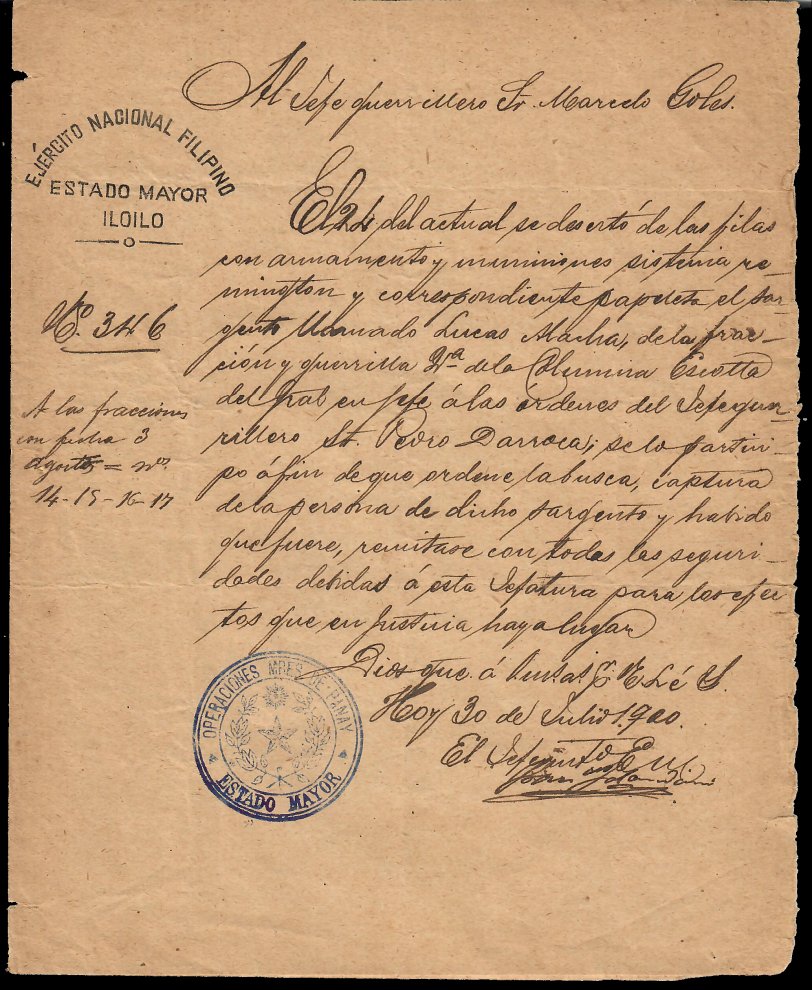 Al Jefe guerrillero Sr. Marcelo Goles.
EJÉRCITO NACIONAL FILIPINO
ESTADO MAYOR
ILOILO
No. 346
A las fracciones
con fecha 3
agosto = nos.
14-15-16-17
El 24 del actual se desertó de las filas
con armamento y municiones sistema re-
mington y correspondiente papeleta el sar-
gento llamado Lucas, de la frac-
ción y guerrilla de la Columna Escolta
del Gral en Jefe á las órdenes del Jefe gue-
rrillero Sr. Pedro Darroca; se lo partici-
po á fin de que ordene la busca, captura
de la persona de dicho sargento y habido
que fuere, remítase con todas las seguri-
dades debidas á esta Jefatura para los efec-
tos que en justicia haya lugar
Dios gue. á
Hoy 30 de Julio 1.900.
El Jefe
OPERACIONES MRES DE PANAY
ESTADO MAYOR